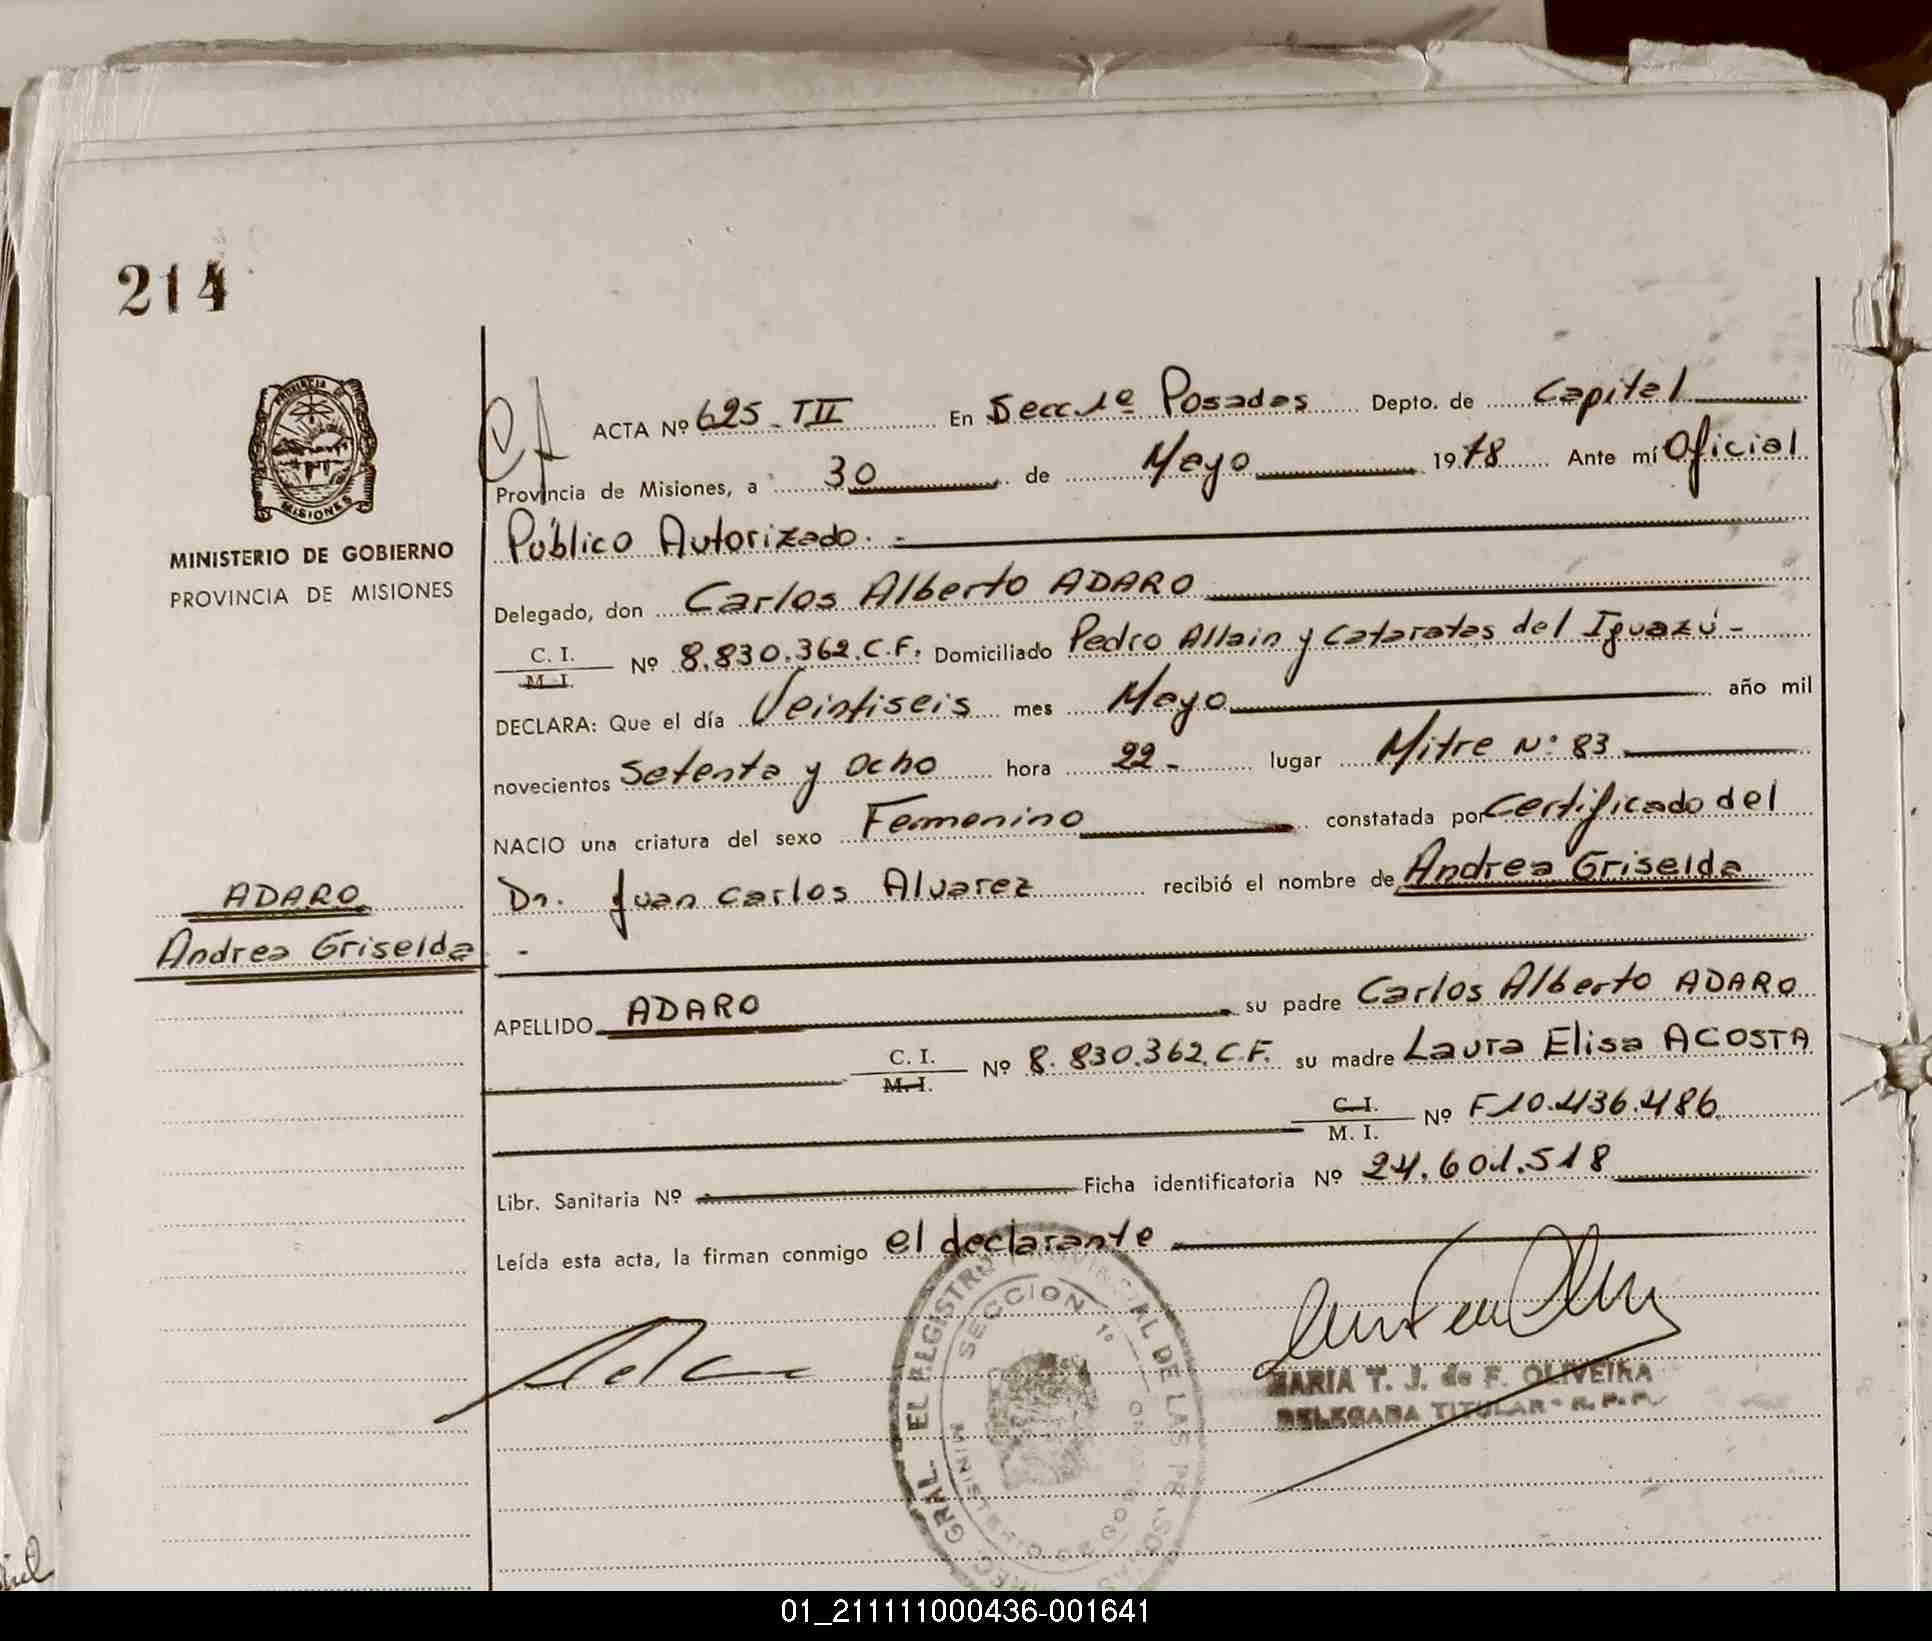 214
PROVINCIA DE
MISIONES
MINISTERIO DE GOBIERNO
PROVINCIA DE MISIONES
ADARO
Andrea Griselda
ACTA Nº 625 - TII En Secc 1º Posadas Depto. de Capital
Provincia de Misiones, a 30 de Mayo 1978 Ante mí Oficial
Público Autorizado. -
Delegado, don Carlos Alberto ADARO
C. I. / M. I. Nº 8.830.362.C.F. Domiciliado Pedro Allain y Cataratas del Iguazú -
DECLARA: Que el día Veintiseis mes Mayo año mil
novecientos Setenta y ocho hora 22 - lugar Mitre Nº 83
NACIO una criatura del sexo Femenino constatada por Certificado del
Dr. Juan Carlos Alvarez recibió el nombre de Andrea Griselda
-
APELLIDO ADARO su padre Carlos Alberto ADARO
C. I. / M. I. Nº 8.830.362.C.F. su madre Laura Elisa ACOSTA
C. I. / M. I. Nº F10.436.486
Libr. Sanitaria Nº Ficha identificatoria Nº 24.601.518
Leída esta acta, la firman conmigo el declarante
GRAL. EL REGISTRO PROVINCIAL DE LAS PERSONAS
SECCION 1º
MARIA T. J. de F. OLIVEIRA
DELEGADA TITULAR - R. P. P.
01_211111000436-001641